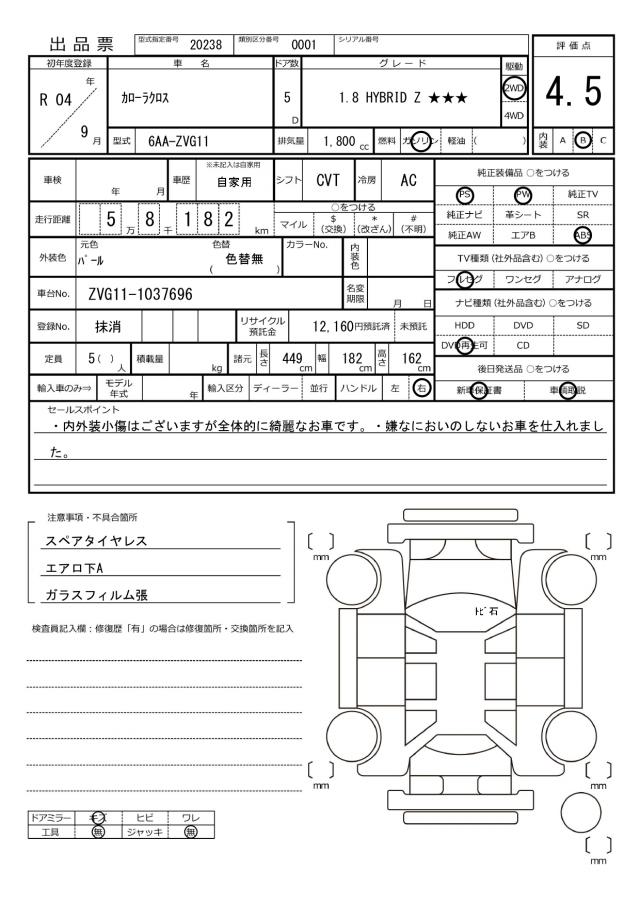 出品票 型式指定番号 20238 類別区分番号 0001 シリアル番号
評価点
4.5
内装 A B C
初年度登録 車名 ドア数 グレード 駆動
R 04 年 9 月 カローラクロス 5 D 1.8 HYBRID Z ★★★ 2WD
4WD
型式 6AA-ZVG11 排気量 1,800 cc 燃料 ガソリン 軽油 ( )
車検 年 月 車歴 ※未記入は自家用 自家用 シフト CVT 冷房 AC
走行距離 5 万 8 千 1 8 2 km ○をつける
マイル $ (交換) * (改ざん) # (不明)
外装色 元色 パール 色替 ( 色替無 ) カラーNo. 内装色
車台No. ZVG11-1037696 名変期限 月 日
登録No. 抹消 リサイクル預託金 12,160円預託済 未預託
定員 5( )人 積載量 kg 諸元 長さ 449cm 幅 182cm 高さ 162cm
輸入車のみ⇒ モデル年式 年 輸入区分 ディーラー 並行 ハンドル 左 右
純正装備品 ○をつける
PS PW 純正TV
純正ナビ 革シート SR
純正AW エアB ABS
TV種類(社外品含む)○をつける
フルセグ ワンセグ アナログ
ナビ種類(社外品含む)○をつける
HDD DVD SD
DVD再生可 CD
後日発送品 ○をつける
新車保証書 車輌取説
セールスポイント
・内外装小傷はございますが全体的に綺麗なお車です。・嫌なにおいのしないお車を仕入れまし
た。
注意事項・不具合箇所
スペアタイヤレス
エアロ下A
ガラスフィルム張
検査員記入欄：修復歴「有」の場合は修復箇所・交換箇所を記入
ドアミラー キズ ヒビ ワレ
工具 無 ジャッキ 無
〔 〕 mm
〔 〕 mm
トビ石
〔 〕 mm
〔 〕 mm
〔 〕 mm